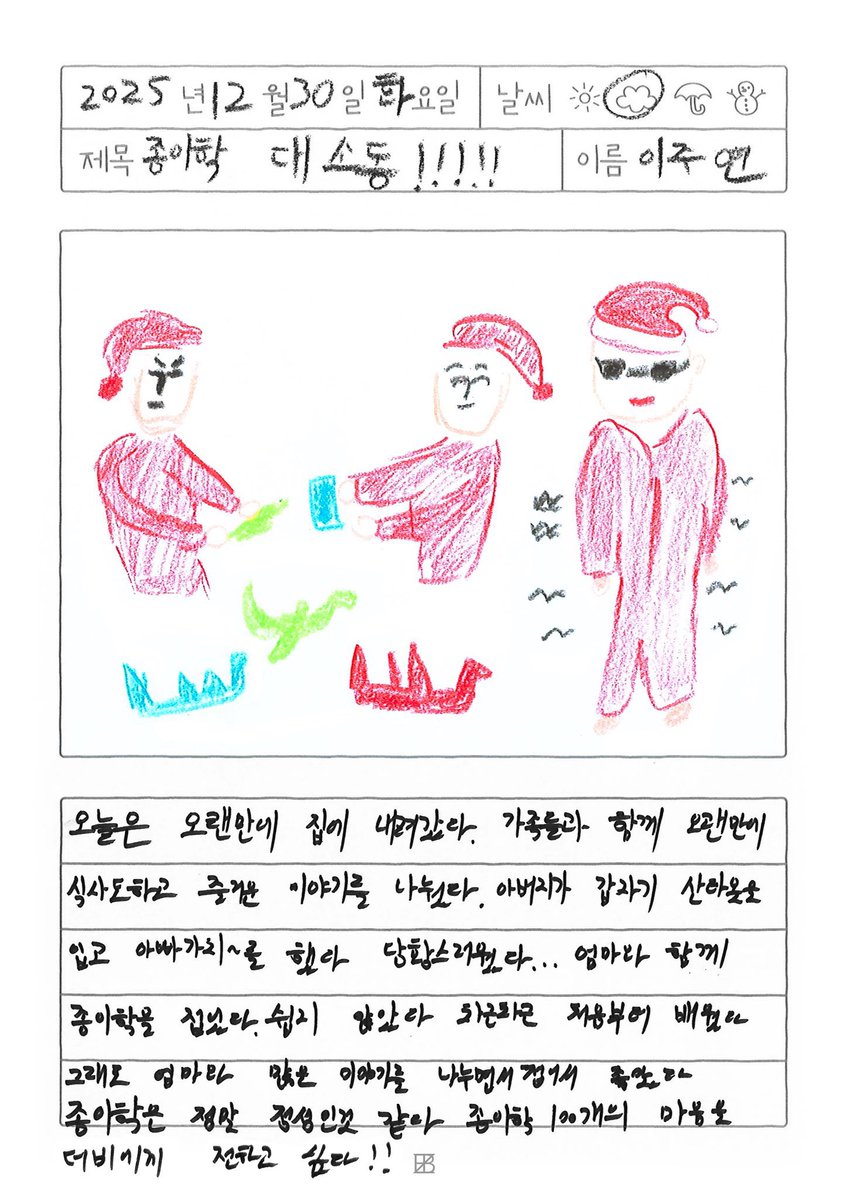 2025년 12월 30일 화요일 날씨
제목 종이학 대소동!!!!! 이름 이주연
오늘은 오랜만에 집에 내려갔다. 가족들과 함께 오랜만에
식사도하고 즐거운 이야기를 나눴다. 아버지가 갑자기 산타옷을
입고 아빠가취~를 했다 당황스러웠다... 엄마랑 함께
종이학을 접었다. 쉽지 않았다 차근차근 처음부터 배웠다
그래도 엄마랑 많은 이야기를 나누면서 접어서 좋았다
종이학은 정말 정성인것 같아 종이학 100개의 마음을
더비에게 전하고 싶다!!